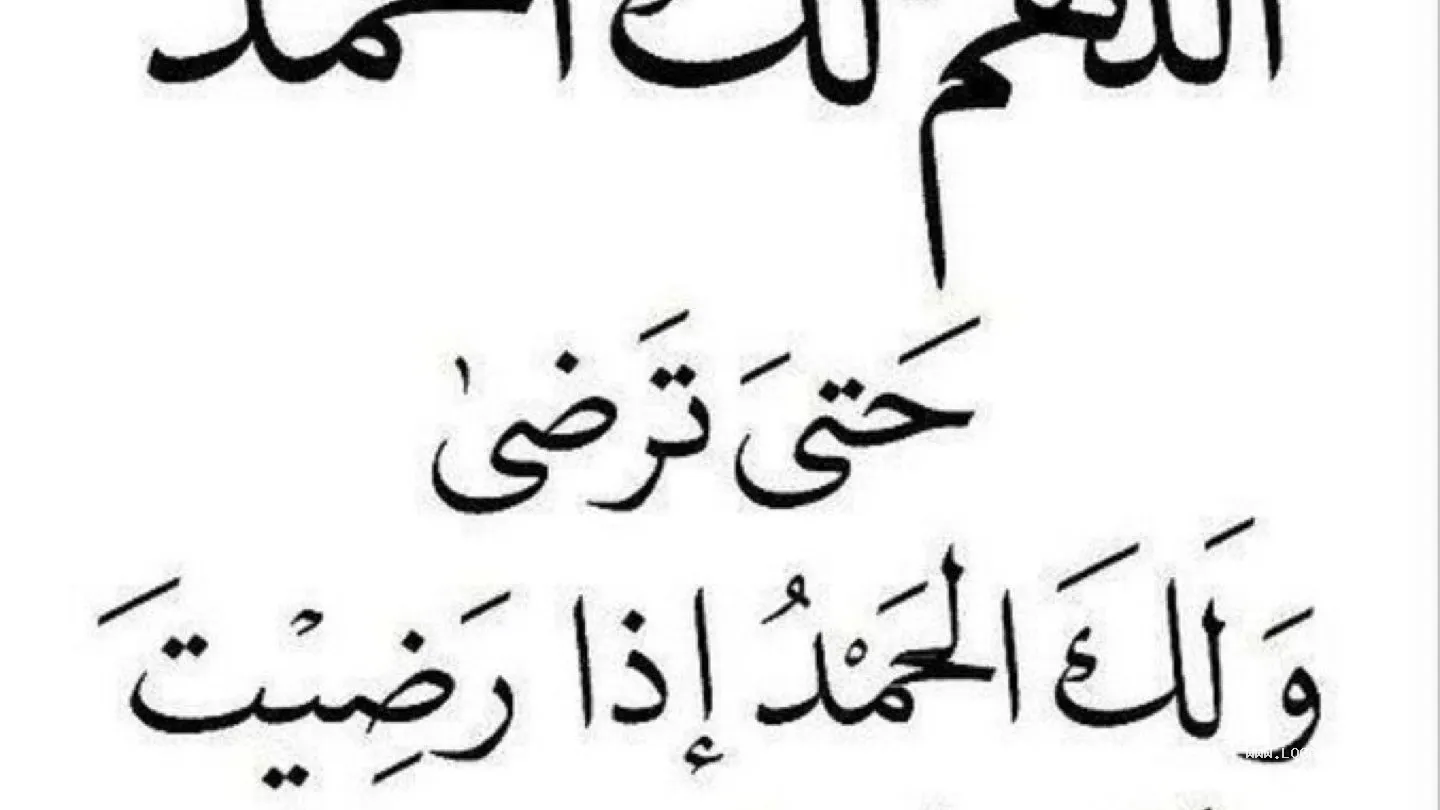 اللهم لك الحمد
حَتىَ تَرَضىٰ
وَ لَكَ الحَمْدُ إذا رَضِيْتَ
WWW.LO